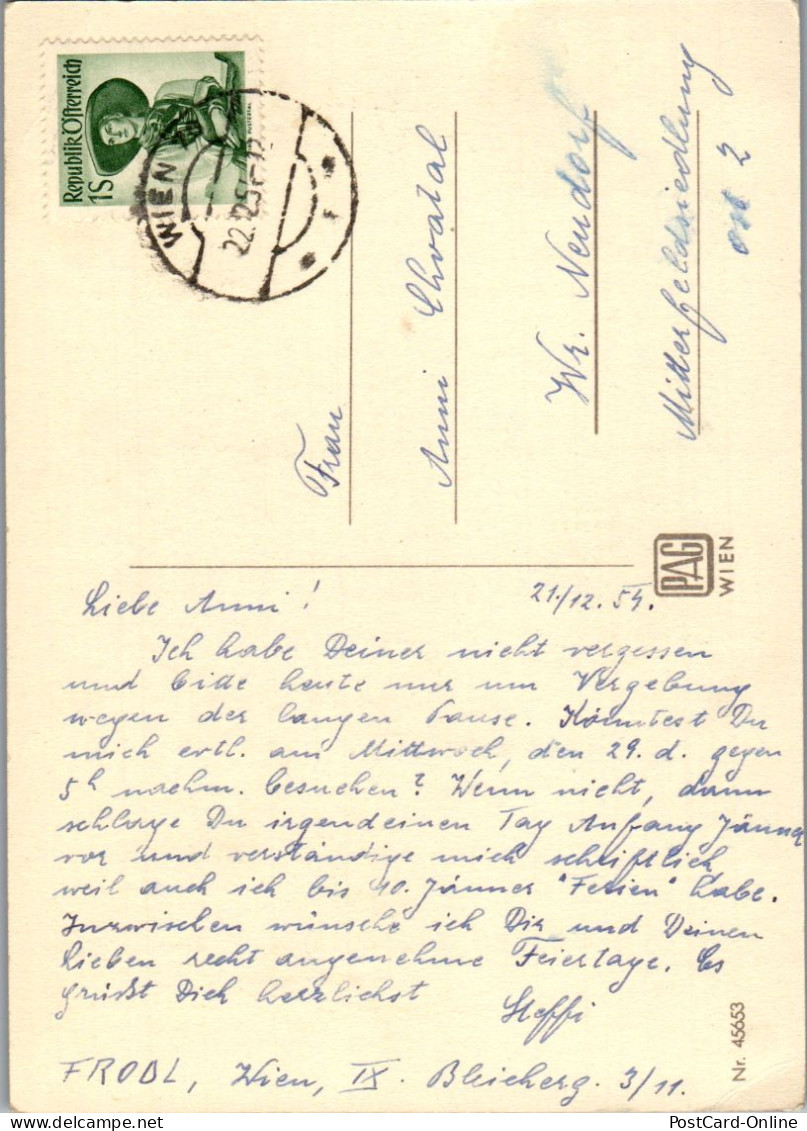 Republik Österreich
1S
WIEN
22.12.54-12
Frau
Anni Chvatal
Wr. Neudorf
Mitterfeldsiedlung
ost 2
PAG
WIEN
21./12.54.
Liebe Anni!
Ich habe Deiner nicht vergessen
und bitte heute nur um Vergebung
wegen der langen Pause. Könntest Du
mich evtl. am Mittwoch, den 29. d. gegen
5h nachm. besuchen? Wenn nicht, dann
schlage Du irgendeinen Tag Anfang Jänner
vor und verständige mich schriftlich
weil auch ich bis 10. Jänner "Ferien" habe.
Inzwischen wünsche ich Dir und Deinen
Lieben recht angenehme Feiertage. Es
grüßt Dich herzlichst
Steffi
FROBL, Wien, IX. Bleicherg. 3/11.
Nr. 45653
PostCard-Online